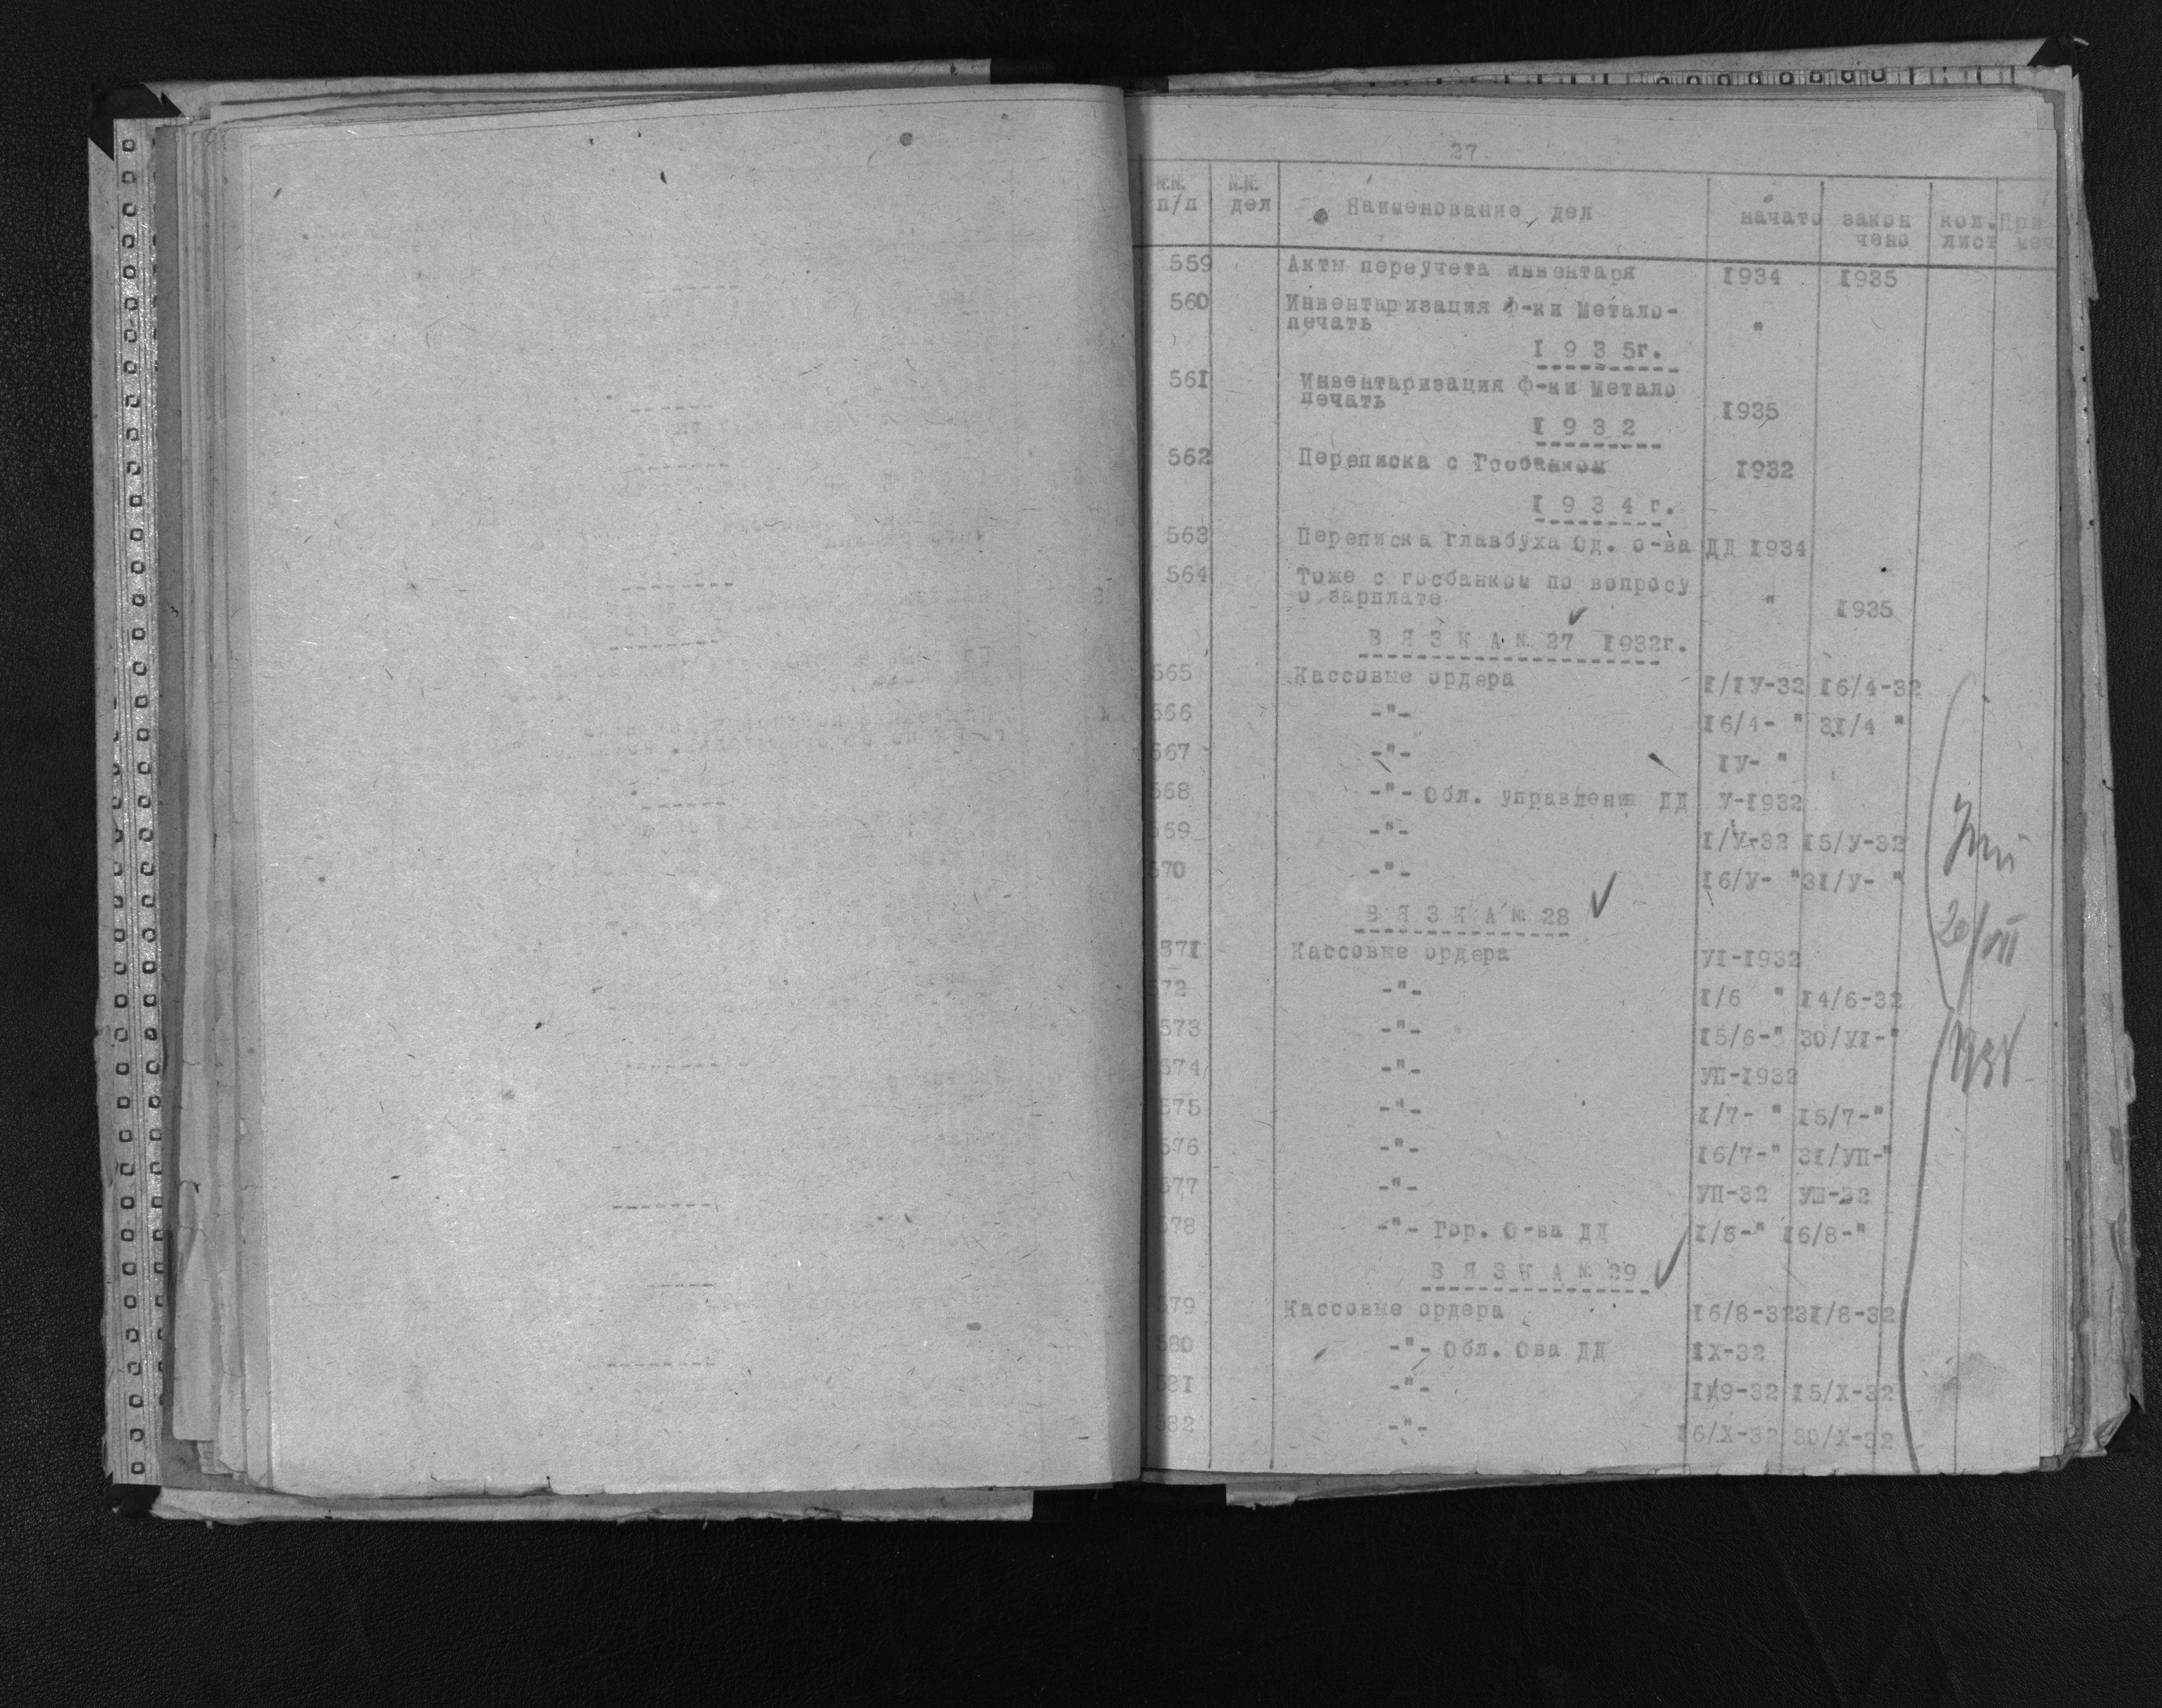 27.
№№ п/п №№ дел Наименование дел начато закон чено кол. лист При меч
559 Акты переучета инвентаря 1934 1935
560 Инвентаризация Ф-ки Метало-
печать "
1 9 3 5г.
561 Инвентаризация Ф-ки Метало
печать 1935
1 9 3 2
562 Переписка с Госбанком 1932
1 9 3 4 г.
563 Переписка главбуха Од. о-ва ДД 1934
564 Тоже с госбанком по вопросу
о зарплате " 1935
В Я З К А № 27 1932г.
565 Кассовые ордера 1/IУ-32 16/4-32
566 -"- 16/4- " 31/4 "
567 -"- IУ- "
568 -"- Обл. управления ДД У-1932
569 -"- 1/У-32 15/У-32
570 -"- 16/У- " 31/У- "
В Я З К А № 28
571 Кассовые ордера УI-1932
572 -"- 1/6 " 14/6-32
573 -"- 15/6-" 30/УI-"
574 -"- УП-1932
575 -"- 1/7- " 15/7-"
576 -"- 16/7-" 31/УП-"
577 -"- УП-32 УШ-32
578 -"- Гор. О-ва ДД 1/8-" 16/8-"
В Я З К А № 29
579 Кассовые ордера 16/8-32 31/8-32
580 -"- Обл. Ова ДД IX-32
581 -"- 1/9-32 15/X-32
582 -"- 16/X-32 30/X-32
20/VII